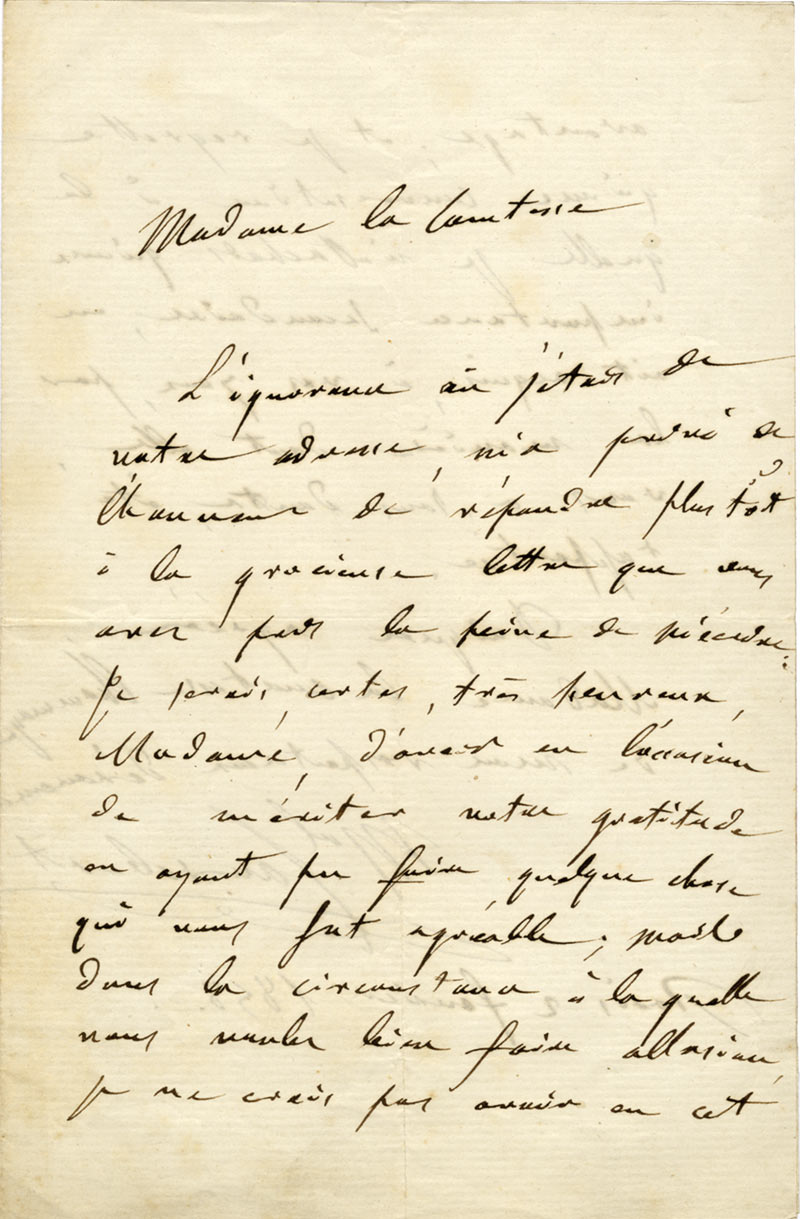 Madame la Comtesse
L'ignorance où j'étais de
votre adresse, m'a privé de
l'honneur de répondre plus tôt
à la gracieuse lettre que vous
avez pris la peine de m'écrire.
Je serais, certes, très heureux,
Madame, d'avoir eu l'occasion
de mériter votre gratitude
en ayant pu faire quelque chose
qui vous fut agréable; mais
dans la circonstance à la quelle
vous voulez bien faire allusion,
je ne crois pas avoir eu cet